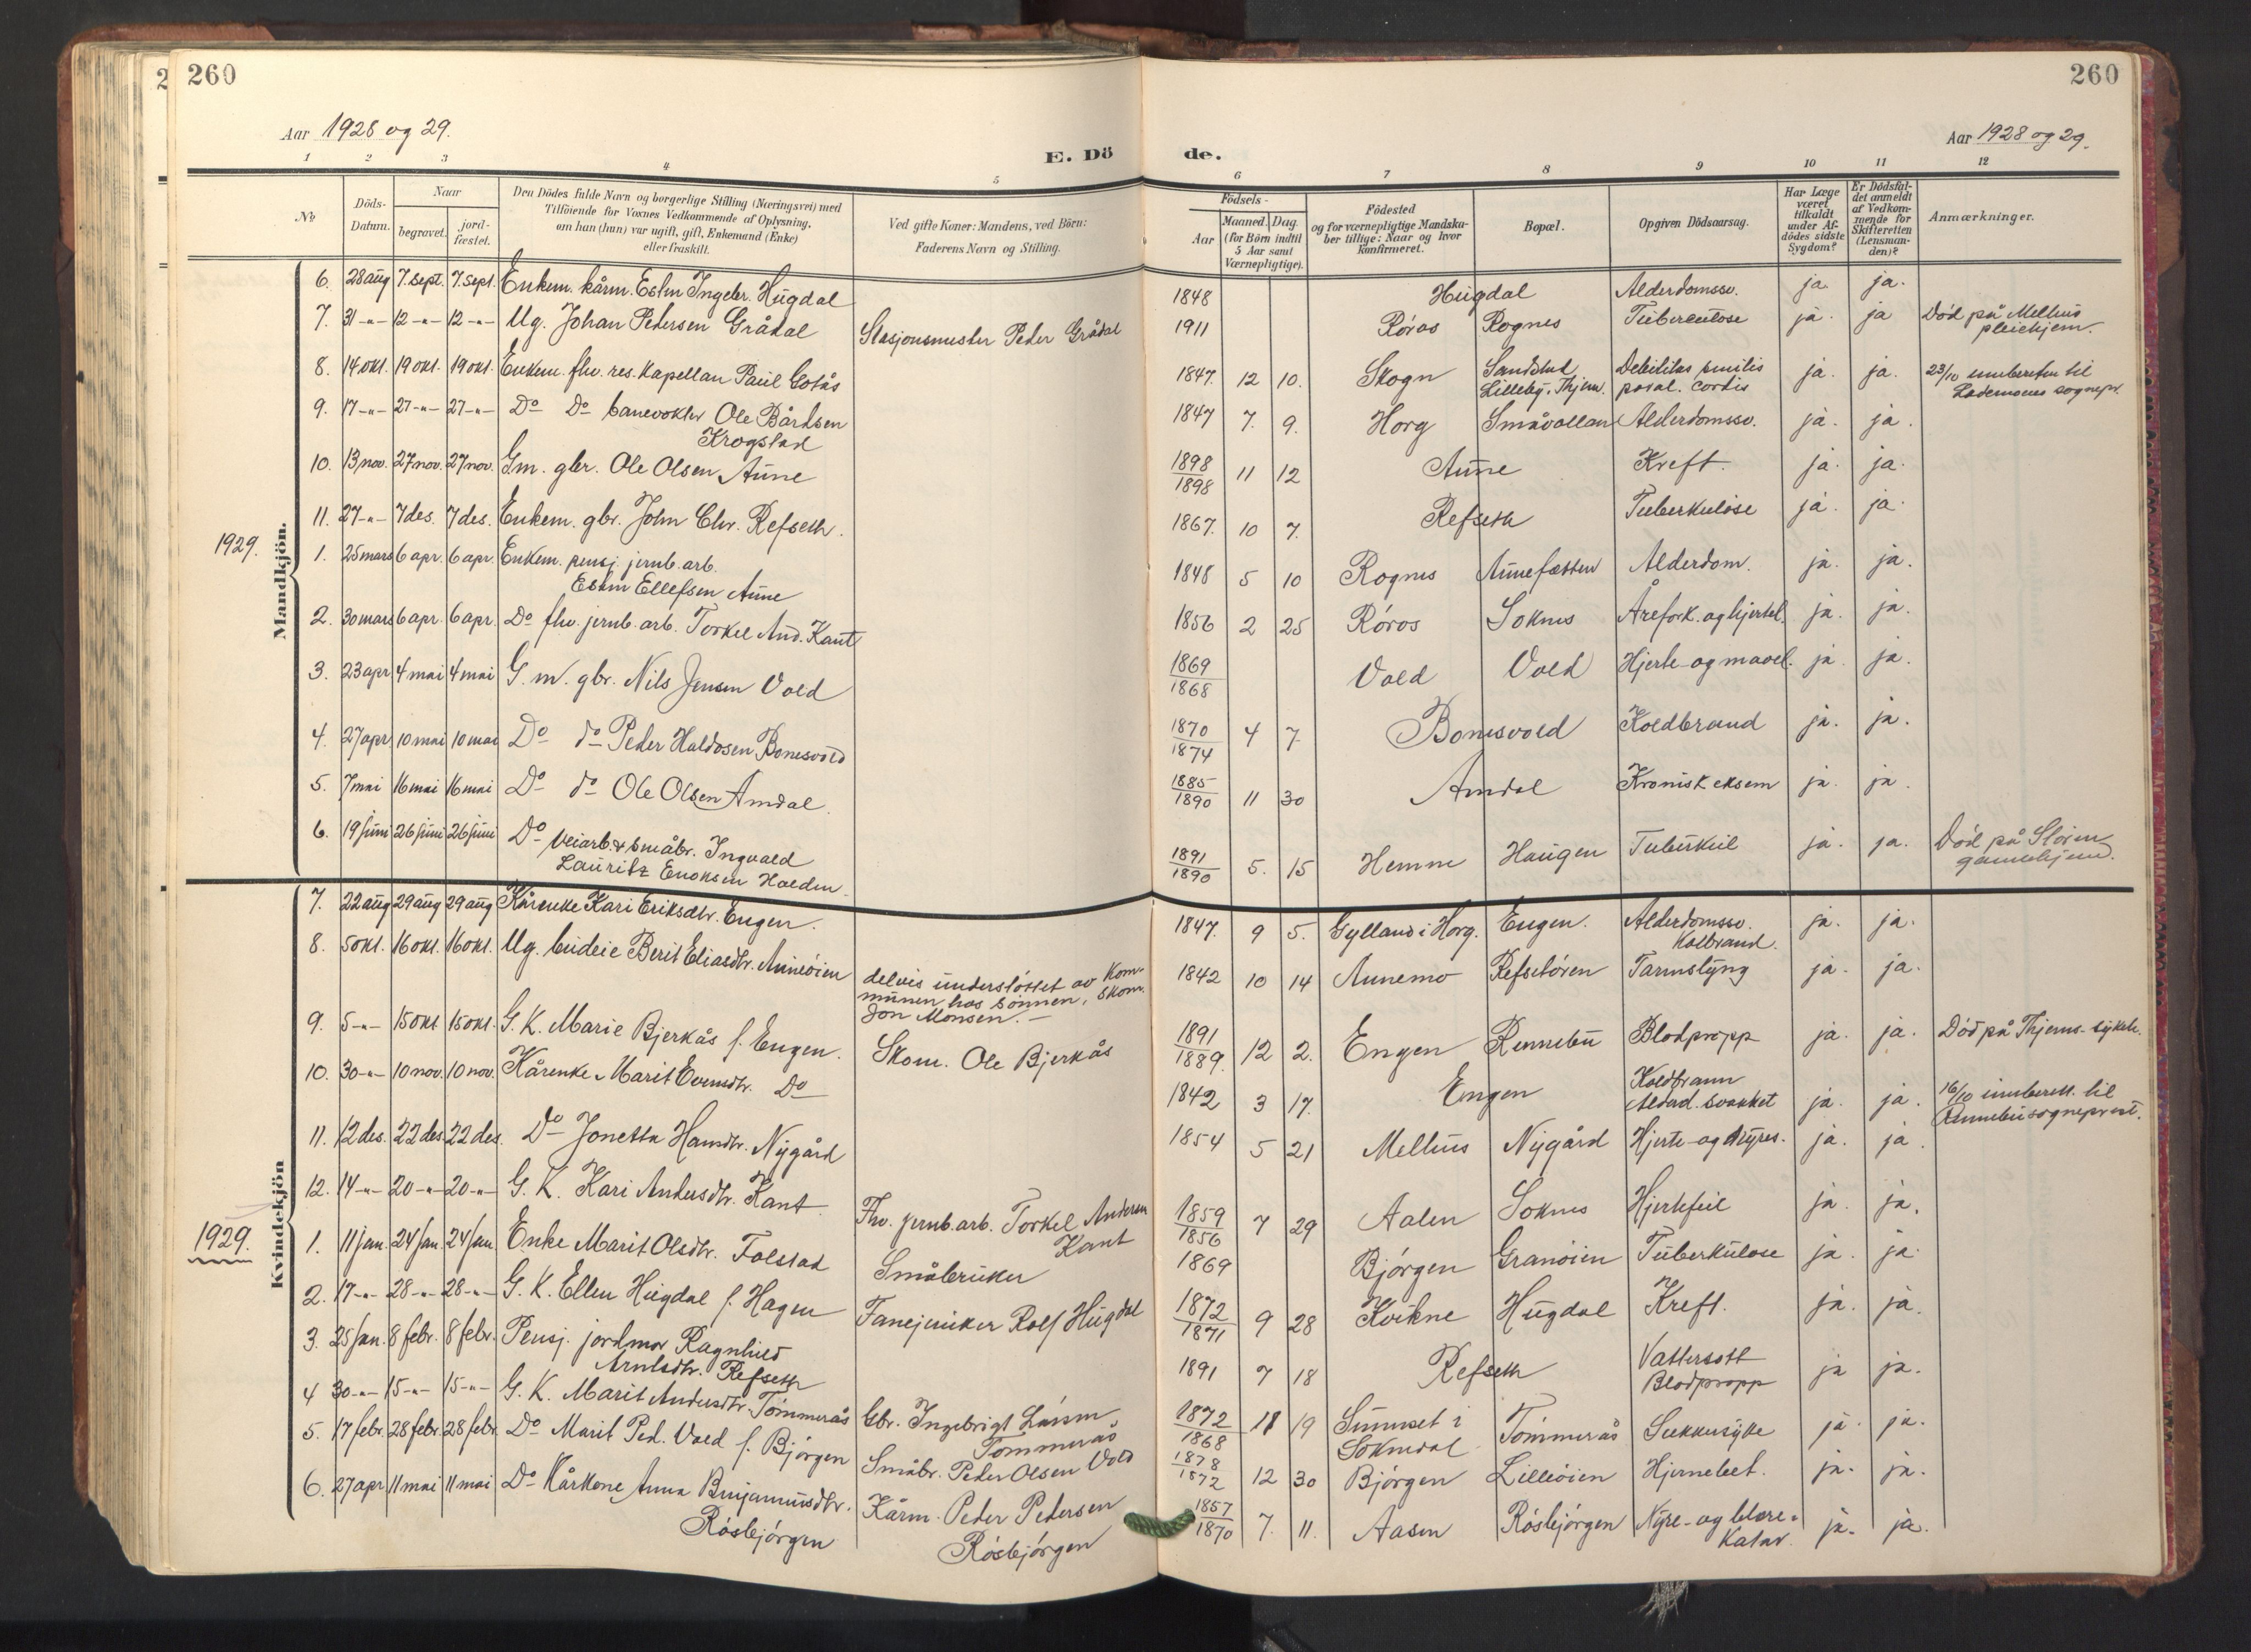 260
260
Aar 1928 og 29.
E. Dö de.
Aar 1928 og 29.
1 2 3 4 5 6 7 8 9 10 11 12
No
Döds-Datum.
Naar
begravet. jord-fæstet.
Den Dödes fulde Navn og borgerlige Stilling (Næringsvei) med
Tilföiende for Voxnes Vedkommende af Oplysning,
om han (hun) var ugift, gift, Enkemand (Enke)
eller fraskilt.
Ved gifte Koner: Mandens, ved Börn:
Faderens Navn og Stilling.
Födsels-
Aar
Maaned. Dag.
(for Börn indtil
5 Aar samt
Værnepligtige).
Födested
og for værnepligtige Mandska-
ber tillige: Naar og hvor
konfirmeret.
Bopæl.
Opgiven Dödsaarsag.
Har Læge
været
tilkaldt
under Af-
dödes sidste
Sygdom?
Er Dödsfal-
det anmeldt
af Vedkom-
mende for
Skifteretten
(Lensman-
den)?
Anmærkninger.
Mandkjön.
6. 28 aug 7. sept. 7. sept. Enkem. kårm. Esten Ingebr. Hugdal 1848 Hugdal Alderdomssv. ja. ja.
7. 31 -"- 12 -"- 12 -"- Ug. Johan Petersen Grådal Stasjonsmester Peder Grådal 1911 Røros Rognes Tuberculose ja. ja Død på Melhus
pleiehjem.
8. 14 okt. 19 okt. 19 okt. Enkem. fhv. res. kapellan Paul Gotås 1847. 12 10. Skogn Sandstad
Lilleby, Thjem. Debilitas senilis
paral. cordis ja. ja. 23/10 innberettet til
Lademoens sognepr.
9. 17 -"- 27 -"- 27 -"- Do Do banevokter Ole Bårdsen
Krogstad 1847 7. 9. Horg Småvollan Alderdomssv. ja. ja.
10. 13 nov. 27 nov. 27 nov. Gm. gbr. Ole Olsen Aune 1898
1898 11 12 Aune Kreft. ja. ja.
11. 27 -"- 7 des. 7 des. Enkem. gbr. John Chr. Refseth. 1867. 10 7. Refseth Tuberkulose ja. ja.
1929.
1. 25 mars 6 apr. 6 apr. Enkem. pensj. jernb. arb.
Esten Ellefsen Aune 1848 5 10 Rognes Aunefætten Alderdom. ja. ja.
2. 30 mars 6 apr. 6 apr. Do fhv. jernb. arb. Torkel And. Kant 1856 2 25 Røros Soknes Årefork. og hjertel. ja. ja.
3. 23 apr 4 mai 4 mai G. m. gbr. Nils Jensen Vold 1869
1868 Vold Vold Hjerte- og mavel. ja. ja.
4. 27 apr 10 mai 10 mai Do do Peder Haldosen Bonesvold 1870
1874 4 7 Bonesvold Koldbrand ja. ja.
5. 7 mai 16 mai 16 mai Do do Ole Olsen Amdal 1885
1890 11 30 Amdal Kronisk eksem ja. ja.
6. 19 juni 26 juni 26 juni Do veiarb. & småbr. Ingvald
Lauritz Enoksen Halden 1891
1890 5. 15 Hemne Haugen Tuberkul ja. ja. Død på Støren
gamlehjem.
Kvindekjön
7. 22 aug 29 aug 29 aug Kårenke Kari Eriksdtr. Engen. 1847. 9 5. Gylland i Horg. Engen. Alderdomssv.
Kolbrand. ja. ja.
8. 5 okt. 16 okt. 16 okt. Ug. budeie Berit Eliasdtr. Auneøien delvis understøttet av Kom-
munen, hos sønnen, skom.
Jon Monsen. — 1842 10 14 Aunemo Refsetøien Tarmslyng ja. ja.
9. 5 -"- 15 okt. 15 okt. G. K. Marie Bjerkås f. Engen. Skom. Ole Bjerkås 1891
1889. 12 2. Engen Rennebu Blodpropp ja. ja. Død på Thjems. sykeh.
10. 30 -"- 10 nov. 10 nov. Kårenke Marit Evensdtr. Do 1842 3 17. Engen Koldbrann
Alderd. svakket ja. ja. 16/10 innberett. til
Rennebu sogneprest.
11. 12 des. 22 des 22 des. Do Jonetta Hansdtr. Nygård 1854 5 21 Melhus Nygård Hjerte- og nyres. ja. ja.
12. 14 -"- 20 -"- 20 -"- G. K. Kari Andersdtr. Kant Fhv. jernb. arb. Torkel Andersen
Kant 1859
1856 7 29 Aalen Soknes Hjertefeil ja. ja.
1929.
1. 11 jan. 24 jan. 24 jan Enke Marit Olsdtr. Folstad Småbruker 1869 Bjørgen Granøien Tuberkulose ja. ja.
2. 17 -"- 28 -"- 28 -"- G. K. Ellen Hugdal f. Hagen Fanejunker Rolf Hugdal 1872
1871 9 28 Kvikne Hugdal Kreft. ja. ja.
3. 25 jan. 8 febr. 8 febr. Pensj. jordmor Ragnhild
Arntsdtr. Refseth 1891 7 18 Refseth Vattersott
Blodpropp ja ja.
4 30 -"- 15 -"- 15 -"- G. K. Marit Andersdtr. Tømmerås Gbr. Ingebrigt Larsen
Tømmerås 1872
1868 11 19 Sunnset i
Soknedal Tømmerås Sukkersyke ja. ja.
5. 17 febr. 28 febr. 28 febr. Do Marit Ped. Vold f. Bjørgen Småbr. Peder Olsen Vold 1878
1872 12 30 Bjørgen Lilleøien Hjernebet. ja. ja.
6. 27 apr 11 mai 11 mai Do Kårkone Anna Benjaminsdtr.
Røsbjørgen Kårm. Peder Pedersen
Røsbjørgen 1857
1870 7. 11. Aasen Røsbjørgen Nyre- og blære-
Katar. ja. ja.